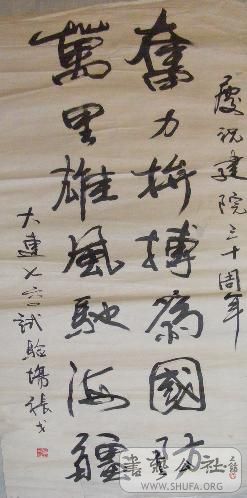 慶祝建院三十周年
奮力拚搏為國防
萬里雄風馳海疆
大連七六〇試驗場張
書艺公社
WWW.SHUFA.ORG